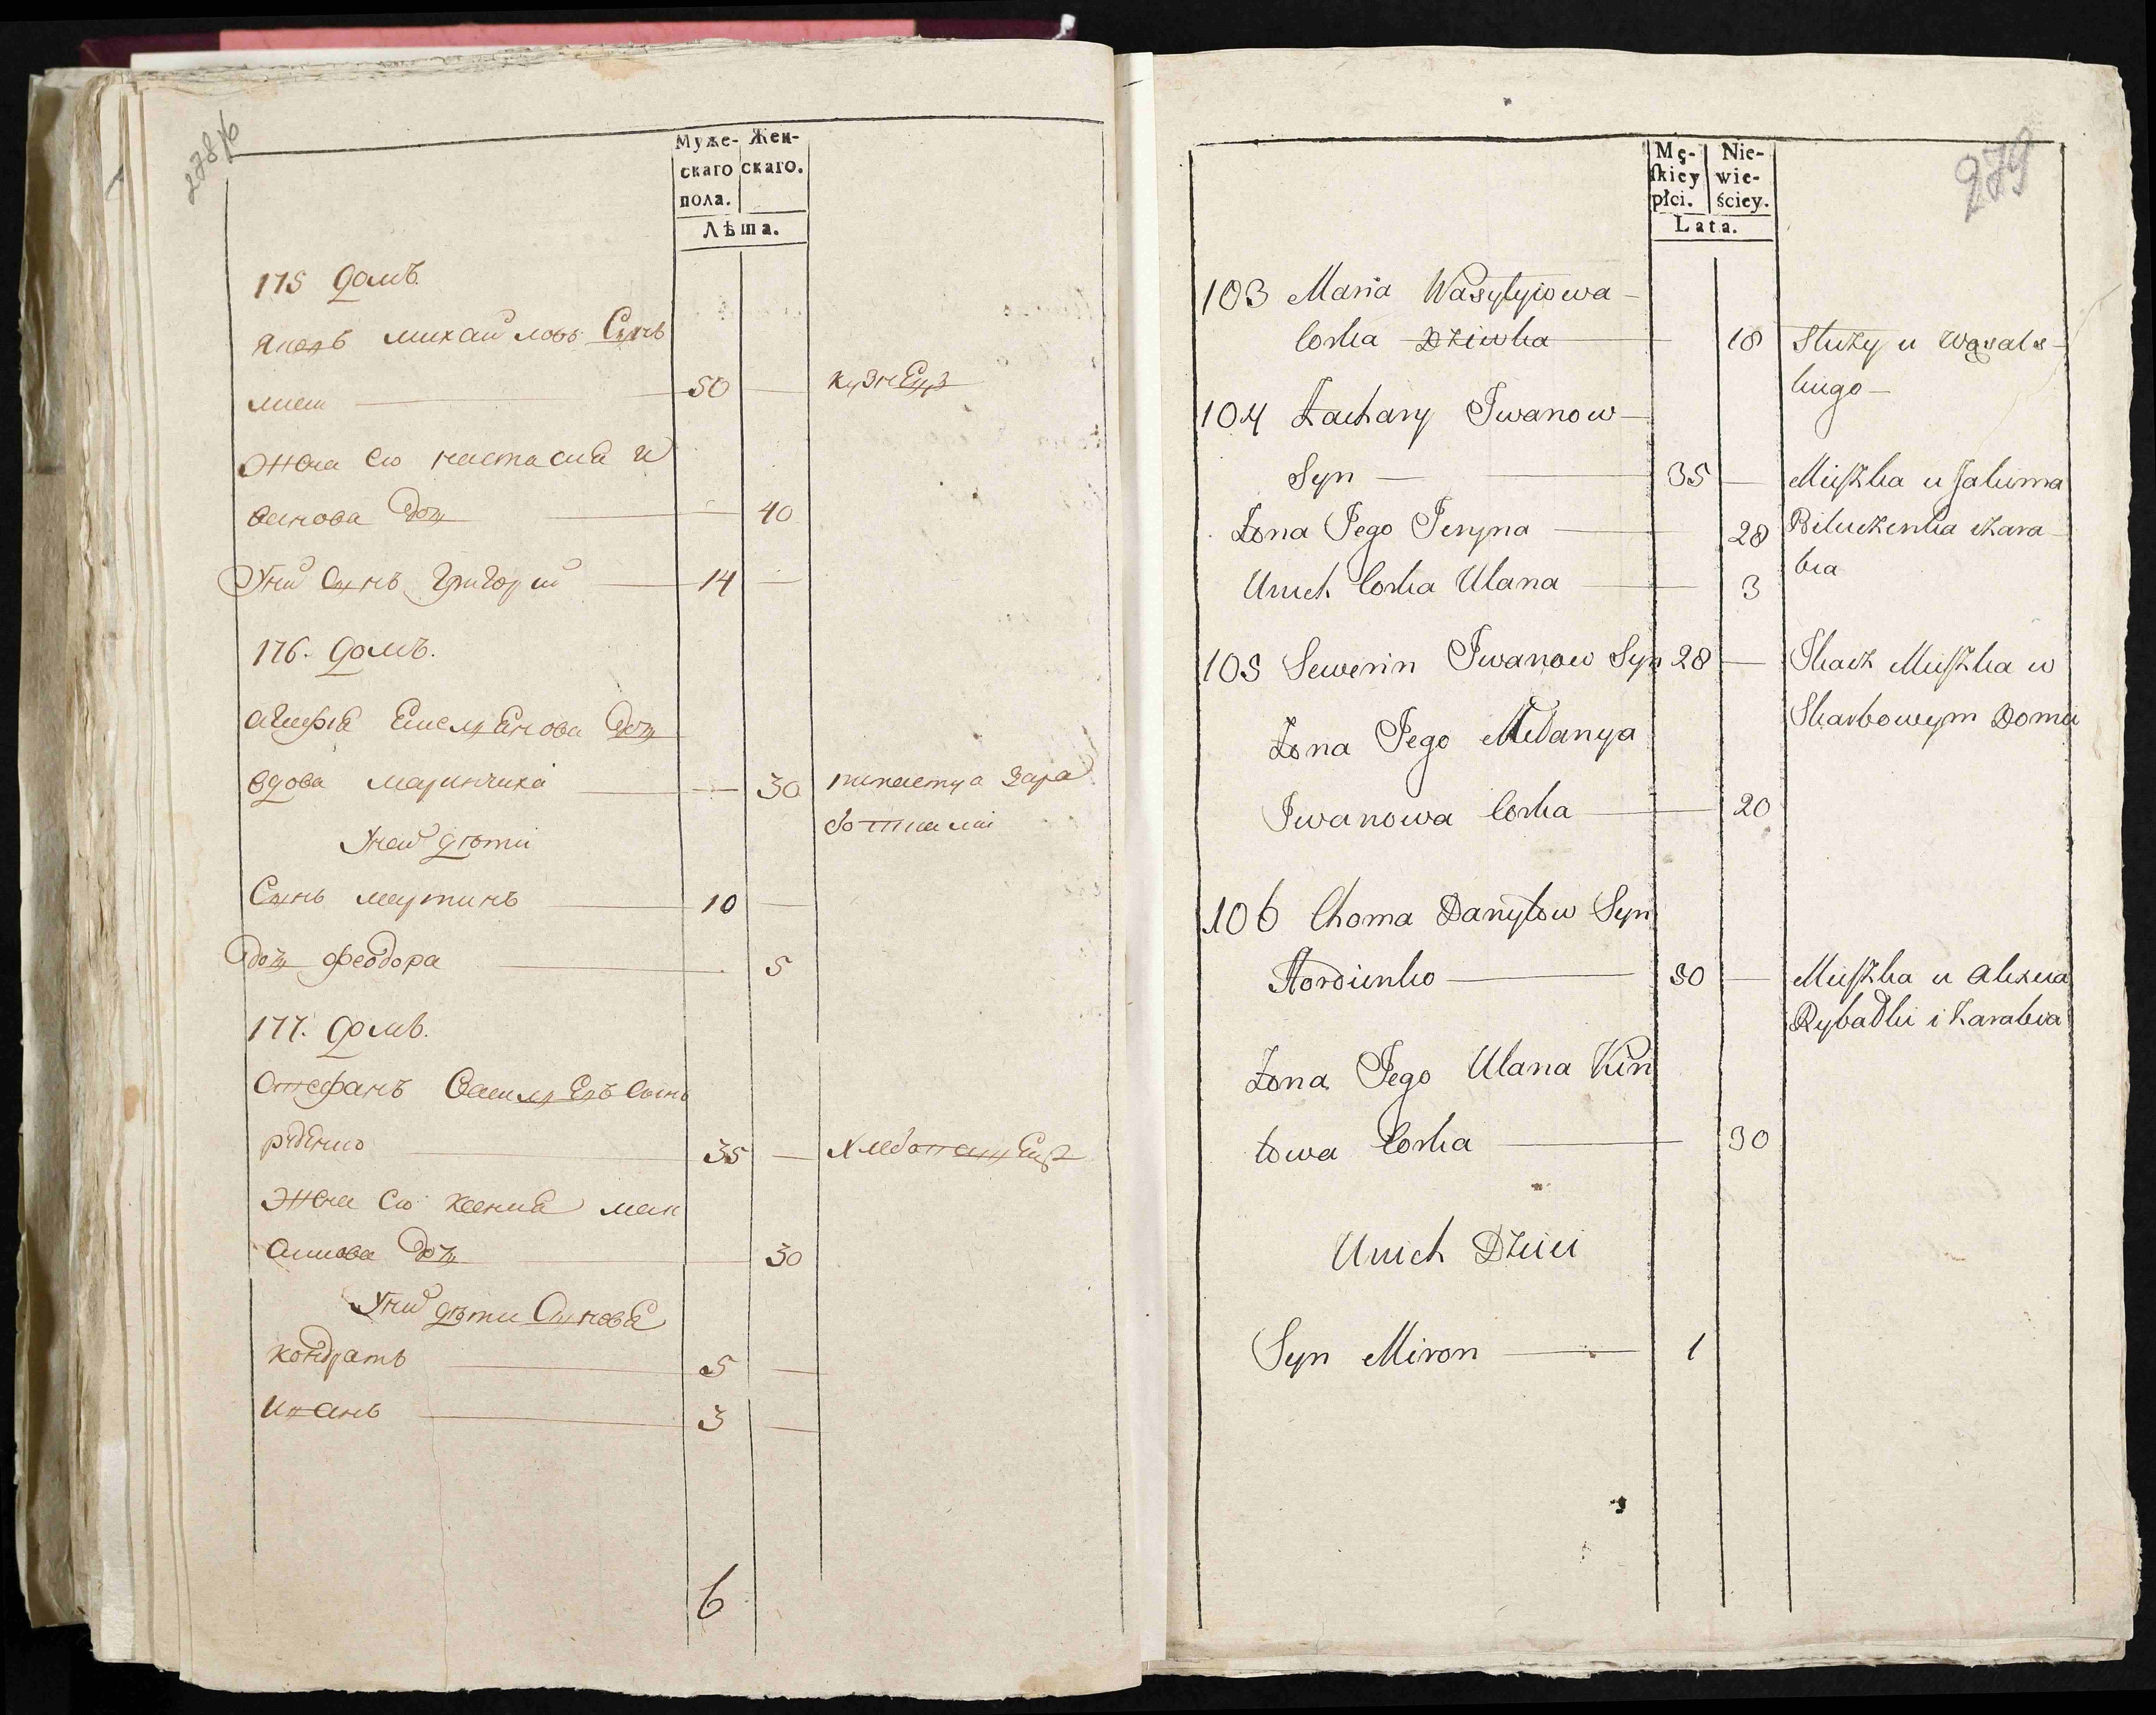 278/б
Муже- Жен-
скаго скаго.
пола.
Лѣта.
175 домъ.
Яковъ михайловъ Сынъ
50 кузнецъ
жена его настасиа и
ванова дочь 40
У них Сынъ Григорий 14
176. домъ.
агафиа Емелянова дочь
вдова маринчиха 30 питается зара
ботками
У ней дѣти
Сынъ мартинъ 10
дочь феодора 5
177. домъ.
Стефанъ Васильевъ сынъ
35 Хлебопашецъ
жена его ксения мак
симова дочь 30
У них дѣти Синовя
кондратъ 5
Иванъ 3
6
279
Mę- Nie-
ſkiey wie-
płci. ściey.
Lata.
103 Maria Wasylyiowa
Corka Dziwka 18 Służy u Wąsals
kiego
104 Zachary Iwanow
Syn 35 Mieſzka u Jakima
Żona Jego Jeryna 28 Biluczenka i Zara
bia
Unich Corka Ulana 3
105 Sewerin Iwanow Syn 28 Tkacz Mieſzka w
Skarbowym Domu
Żona Jego Melanya
Iwanowa Corka 20
106 Choma Danyłow Syn
Hordienko 30 Mieſzka u Alexeia
Rybalki i Zarabia
Żona Jego Ulana Kiri
łowa Corka 30
Unich Dzieci
Syn Miron 1